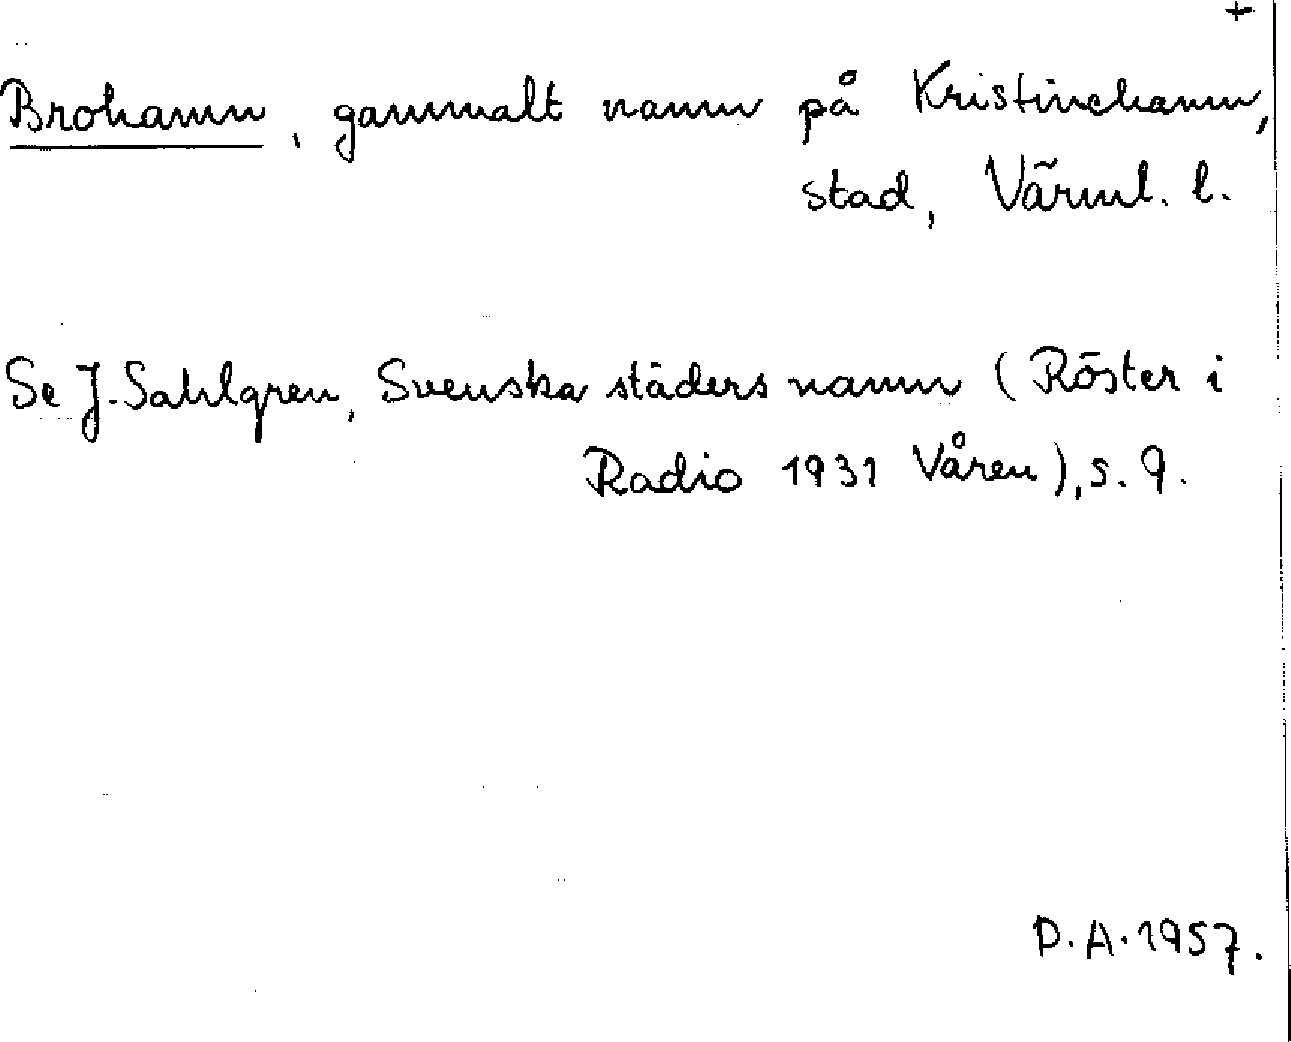 +
Brohamn, gammalt namn på Kristinehamn,
stad, Värml. l.
Se J. Sahlgren, Svenska städers namn (Röster i
Radio 1931 Våren), s. 9.
D. A. 1957.